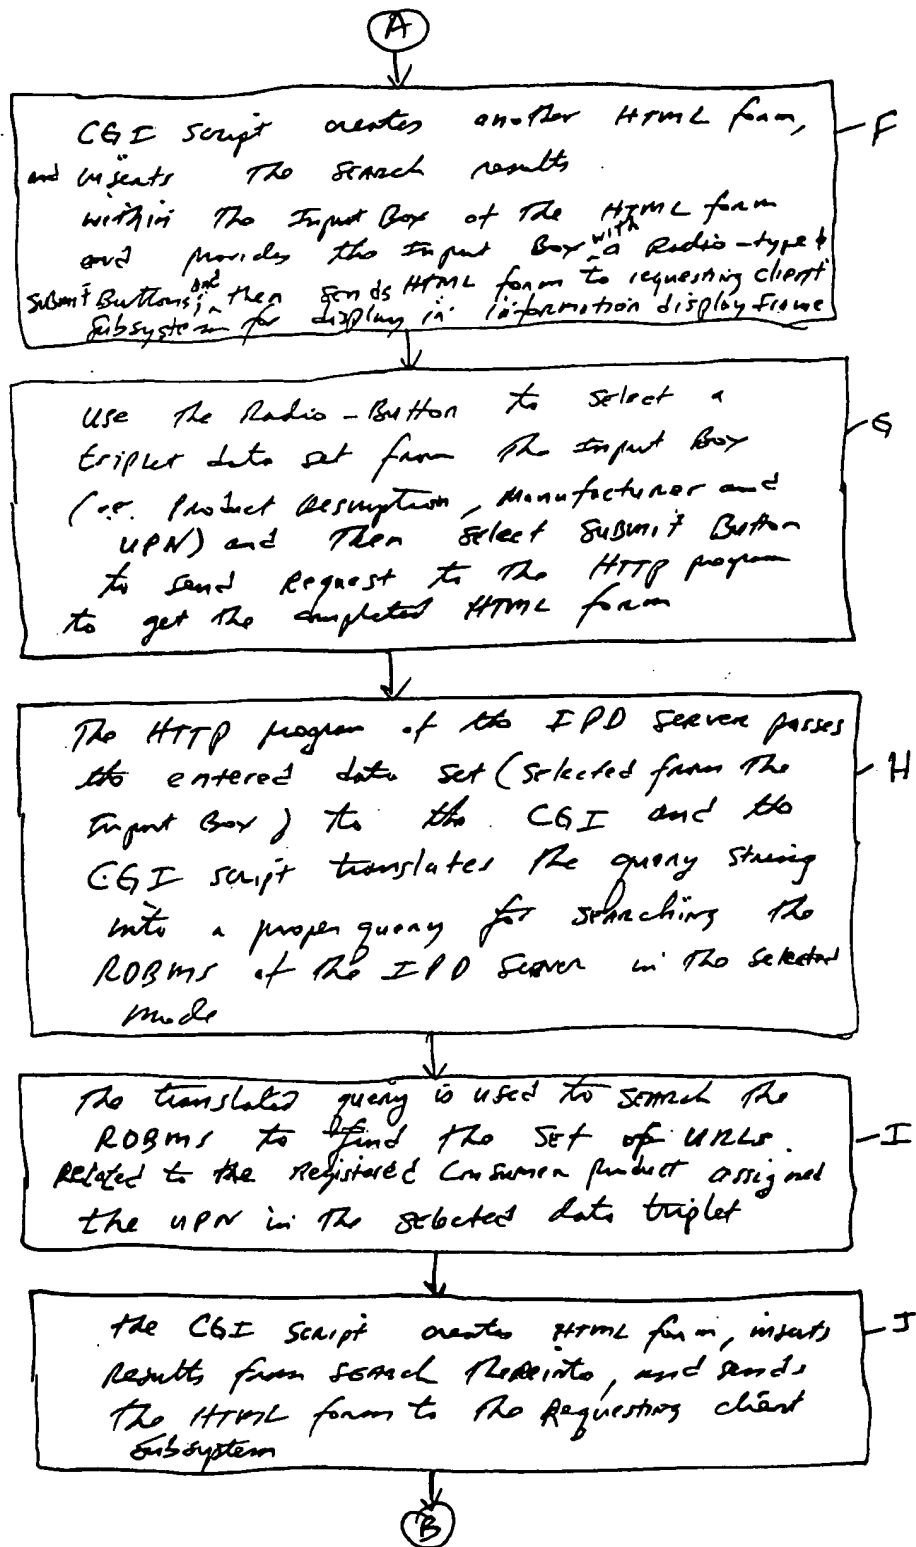 A
CGI script creates another HTML form,
and inserts the search results
within the Input Box of the HTML form
and provides the Input Box with a Radio-type &
submit Buttons; and then sends HTML form to requesting client
subsystem for display in information display frame
F
Use the Radio-Button to select a
triplet data set from the Input Box
(i.e. Product Description, Manufacturer and
UPN) and then select submit Button
to send Request to the HTTP program
to get the completed HTML form
G
The HTTP program of the IPD Server passes
the entered data set (selected from the
Input Box) to the CGI and the
CGI script translates the query string
into a proper query for searching the
RDBMS of the IPD Server in the selected
mode
H
The translated query is used to search the
RDBMS to find the set of URLs
Related to the Registered Consumer product assigned
the UPN in the selected data triplet
I
the CGI script creates HTML form, inserts
Results from search thereinto, and sends
the HTML form to the Requesting client
subsystem
J
B